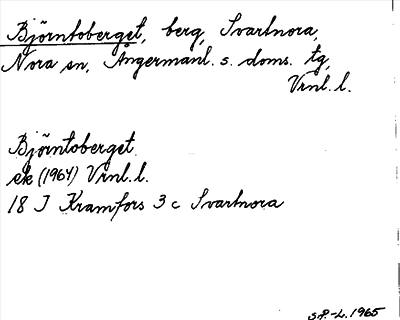 Björntoberget, berg, Svartnora,
Nora sn, Ångermanl. s. doms. tg,
Vrnl. l.
Björntoberget
ek (1964) Vrnl. l.
18 I Kramfors 3 c Svartnora
S.P.-L. 1965